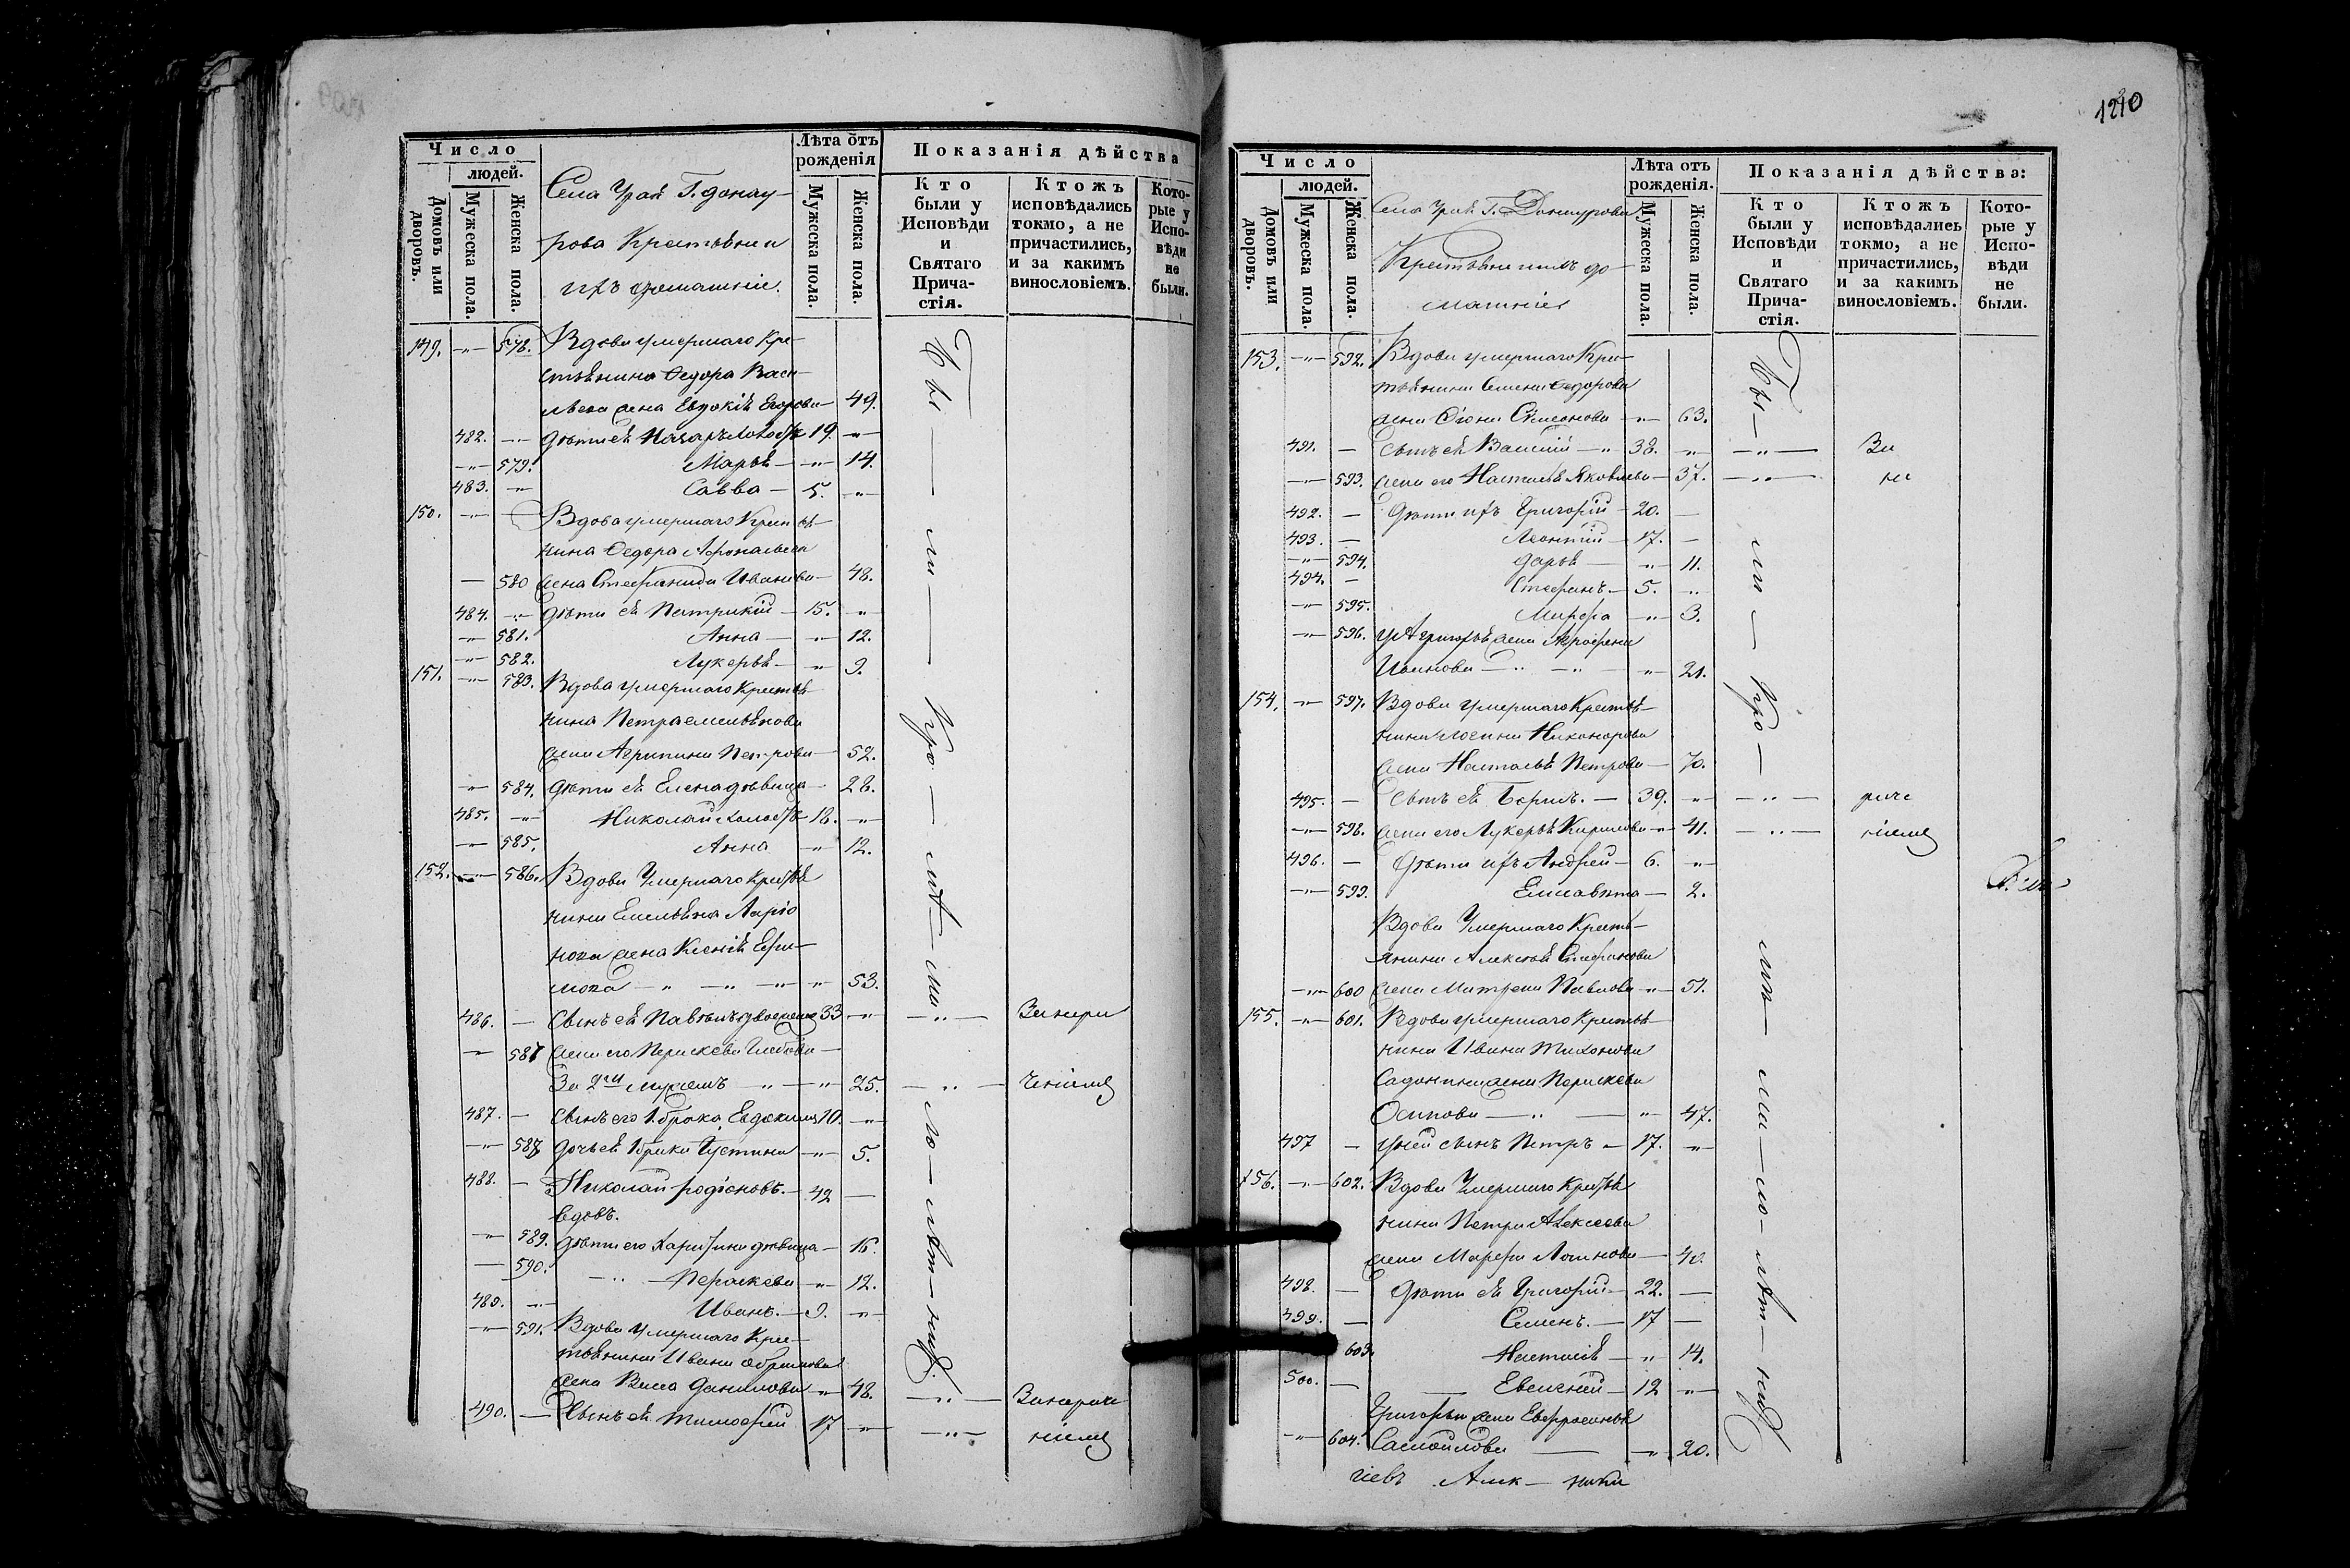 1210
Число
людей.
Домовъ или дворовъ.
Мужеска пола.
Женска пола.
Села Урай Г. Донау-
рова Крестьяне и
ихъ домашніе.
Лѣта отъ рожденія
Мужеска пола.
Женска пола.
Показанія дѣйства
Кто были у Исповѣди и Святаго Причастія.
Ктожъ исповѣдались токмо, а не причастились, и за какимъ винословіемъ.
Которые у Исповѣди не были.
149. 578. Вдова умершаго Кре-
стьянина Ѳедора Васи-
льева жена Евдокія Егорова 49.
482. дѣти ея Назаръ холостъ 19.
579. Марья 14.
483. Савва 5.
150. Вдова умершаго Крестья-
нина Ѳедора Афонасьева
580 жена Стефанида Иванова 48.
484. дѣти ея Патрикій 15.
581. Анна 12.
582. Лукерья 9.
151. 583. Вдова умершаго Крестья-
нина Петра Емельянова
жена Агрипина Петрова 52.
584. дѣти ея Елена дѣвица 28.
485. Николай холостъ 18.
585. Анна 12.
152. 586. Вдова Умершаго Крестья
нина Емельяна Ларіо
нова жена Ксенія Ефи-
мова 53.
486. Сынъ ея Павелъ двоеженъ 33
587 жена его Параскева Глебова
За 2мъ мужемъ 25.
487. Сынъ его 1 брака Евдокимъ 10.
588 дочь ея 1 брака Устинья 5.
488. Николай Родіоновъ 42
вдовъ.
589. дѣти его Харитина дѣвица 16.
590. Параскева 12.
489. Иванъ. 9.
591. Вдова умершаго Кре-
стьянина Ивана Абрамова
жена Васса Данилова 48.
490. Сынъ ея Тимофей 17
Бы-ли-про-
Число
людей.
Домовъ или дворовъ.
Мужеска пола.
Женска пола.
Села Урай Г. Донаурова
Крестьяне и ихъ до-
машніе
Лѣта отъ рожденія.
Мужеска пола.
Женска пола.
Показанія дѣйства:
Кто были у Исповѣди и Святаго Причастія.
Ктожъ исповѣдались токмо, а не причастились, и за какимъ винословіемъ.
Которые у Исповѣди не были.
153. 592. Вдова умершаго Кре-
стьянина Семена Ѳедорова
жена Симеонова 63.
491. Сынъ ея Василій 38. За
593. жена его Настасья Яковлева 37. не
492. дѣти ихъ Григорій 20.
493. Леонтій 17.
594. Дарья 11.
494. Стефанъ 5.
595. Марфа 3.
596. у Григорья жена Агрофена
Иванова 21.
154. 597. Вдова умершаго Крестья-
нина Логина Никонорова
жена Наталья Петрова 70.
495. Сынъ ея Борисъ. 39.
598. жена его Лукерья Кирилова 41. ніемъ
496. дѣти ихъ Андрей 6.
599. Елисавета 2.
Вдова Умершаго Кресть-
янина Алексея Стефанова
600 жена Матрена Павлова 51.
155. 601. Вдова умершаго Крестья-
нина Ивана Тихонова
жена Параскева
Осипова 47.
497 у ней сынъ Петръ 17.
156. 602. Вдова Умершаго Крестья
нина Петра Алексеева
жена Марфа Логинова 42.
498. дѣти ея Григорій 22.
499. Семенъ. 17
603. Настасія 14.
500. Евгеній 12
Григорья жена Евфросинья
604. Самойлова 20.
Бы-ли-про-